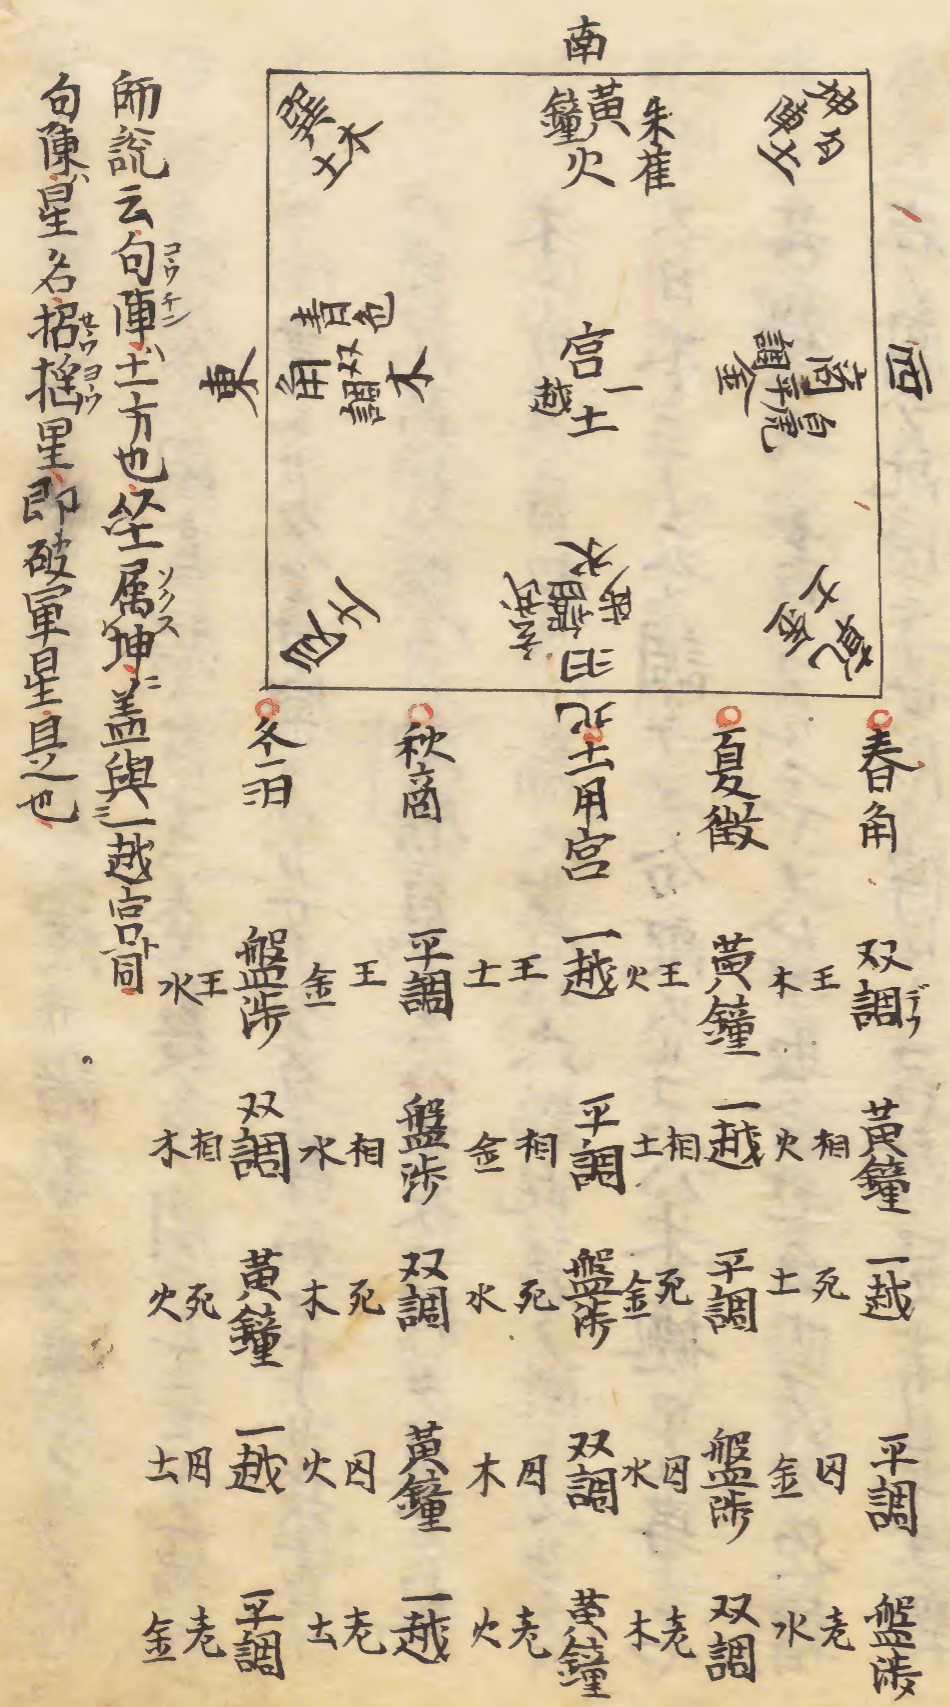 南
朱雀
黄鐘
火
坤
土
巽
木
土
西
白虎
商
平調
金
宮
一越
土
青色
角
双調
木
東
乾
金
土
水
盤渉
羽
北
艮
土
春角
双調デウ
王木
黄鐘
相火
一越
死土
平調
囚金
盤渉
老水
夏徴
黄鐘
王火
一越
相土
平調
死金
盤渉
囚水
双調
老木
土用宮
一越
王土
平調
相金
盤渉
死水
双調
囚木
黄鐘
老火
秋商
平調
王金
盤渉
相水
双調
死木
黄鐘
囚火
一越
老土
冬羽
盤渉
王水
双調
相木
黄鐘
死火
一越
囚土
平調
老金
師説云句陳コウチンハ土方也坐属ソクス坤ニ盖與一越宮ト同
句陳ハ星名招揺セウヨウ星即破軍星是也